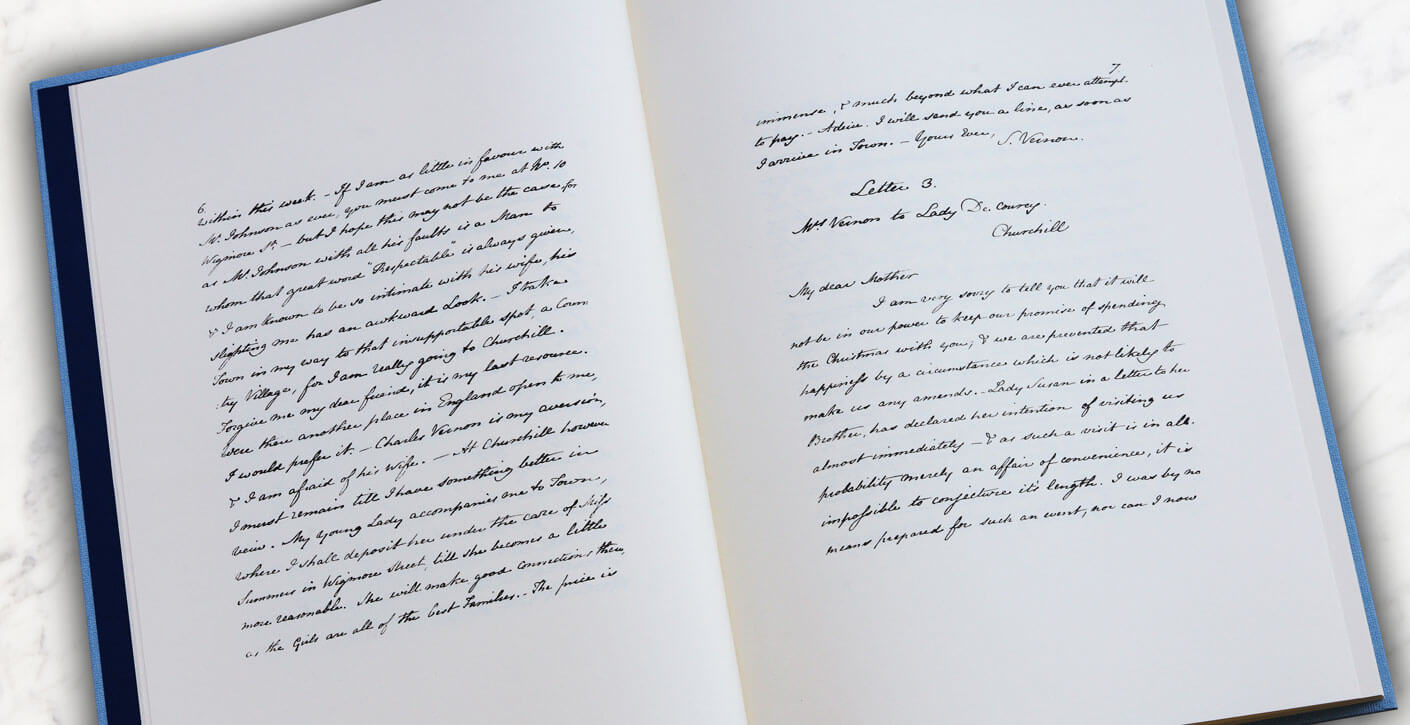 6.
within this week. – If I am as little in favour with
Mr. Johnson as ever, you must come to me at No. 10
Wigmore St. – but I hope this may not be the case, for
as Mr. Johnson with all his faults is a Man to
whom that great word "Respectable" is always given,
& I am known to be so intimate with his wife, his
slighting me has an awkward Look. – I take
Town in my way to that insupportable spot, a Coun
:try Village, for I am really going to Churchill.
Forgive me my dear friend, it is my last resource.
Were there another place in England open to me,
I would prefer it. – Charles Vernon is my aversion,
& I am afraid of his wife. – At Churchill however
I must remain till I have something better in
veiw. My young Lady accompanies me to Town,
where I shall deposit her under the care of Miss
Summers in Wigmore Street, till she becomes a little
more reasonable. She will make good connections there,
as the Girls are all of the best Families. – The price is
7
immense, & much beyond what I can ever attempt
to pay. – Adeiu. I will send you a line, as soon as
I arrive in Town. – Yours Ever,
S. Vernon.
Letter 3.
Mrs Vernon to Lady De Courcy.
Churchill
My dear Mother
I am very sorry to tell you that it will
not be in our power to keep our promise of spending
the Christmas with you; & we are prevented that
happiness by a circumstance which is not likely to
make us any amends. – Lady Susan in a letter to her
Brother, has declared her intention of visiting us
almost immediately – & as such a visit is in all
probability merely an affair of convenience, it is
impossible to conjecture it's length. I was by no
means prepared for such an event, nor can I now